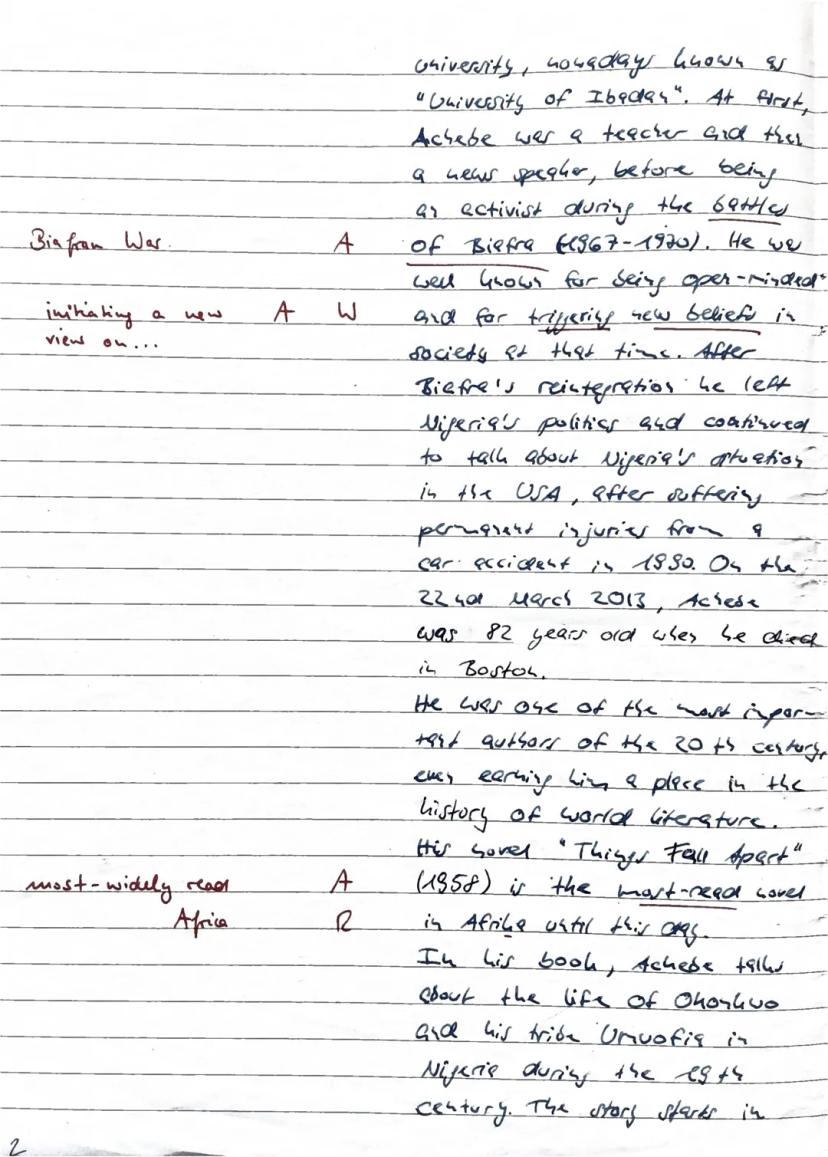 university, nowadays known as
"University of Ibadan". At first,
Achebe was a teacher and then
a news speaker, before being
an activist during the battles
Biafran War A of Biafra (1967-1970). He was
well known for being open-minded
initiating a new A W and for triggering new beliefs in
view on... society at that time. After
Biafra's reintegration he left
Nigeria's politics and continued
to talk about Nigeria's situation
in the USA, after suffering
permanent injuries from a
car accident in 1990. On the
22nd March 2013, Achebe
was 82 years old when he died
in Boston.
He was one of the most impor-
tant authors of the 20th century,
even earning him a place in the
history of world literature.
His novel "Things Fall Apart"
most-widely read A (1958) is the most-read novel
Africa R in Afrika until this day.
In his book, Achebe talks
about the life of Okonkwo
and his tribe Umuofia in
Nigeria during the 19th
century. The story starts in
2